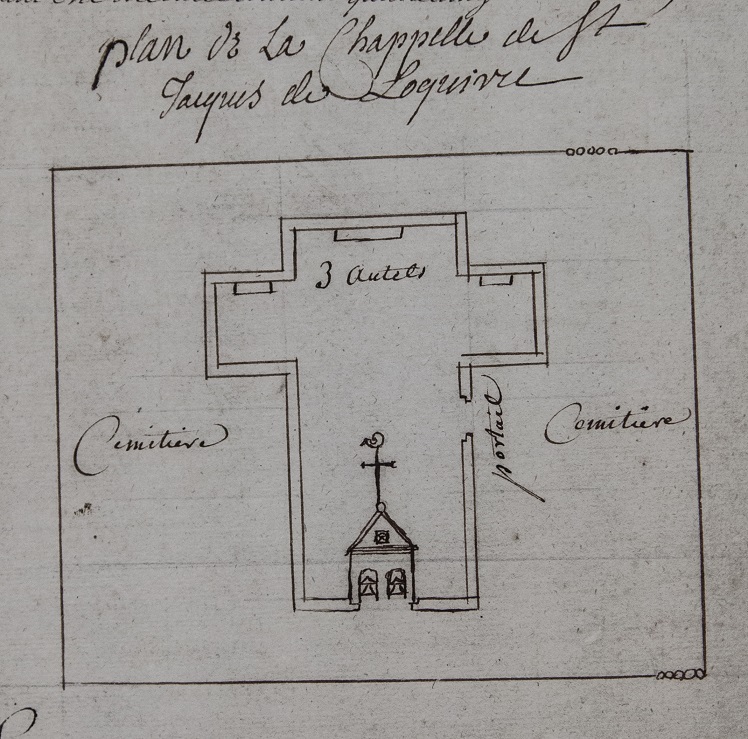 plan de La Chappelle de St
Jacques de Loquivre
3 autels
portail
Cemitière
Cemitière